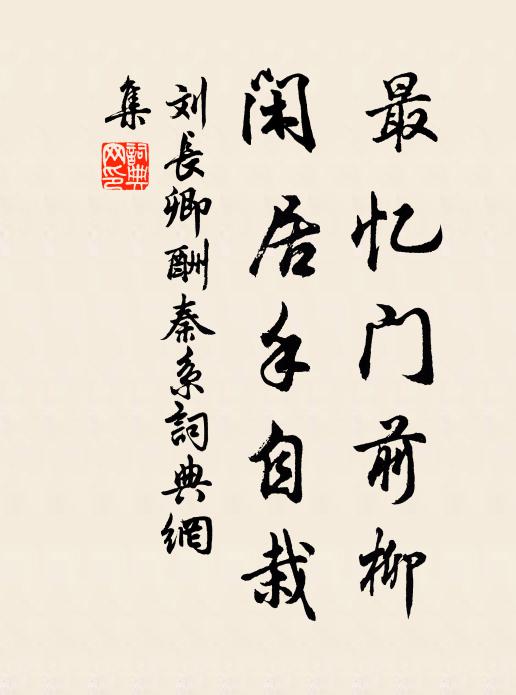 最忆门前柳
闲居手自栽
刘长卿酬秦系詞典網
集
詞典
网印